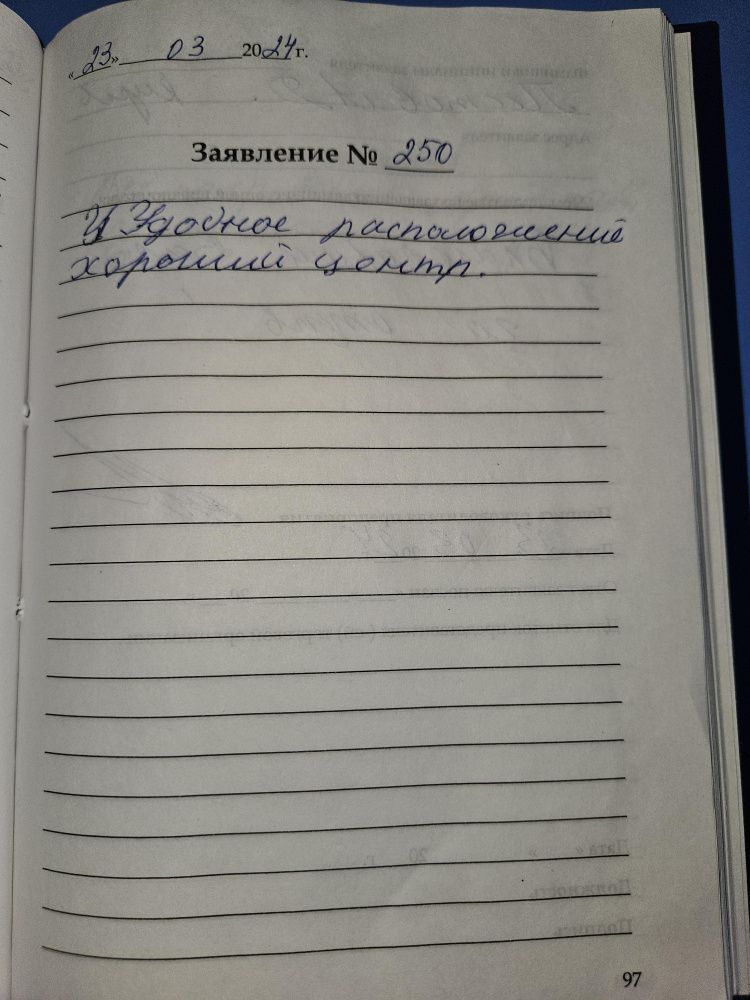 «23» 03 2024 г.
Заявление № 250
Удобное расположений
хороший центр.
97